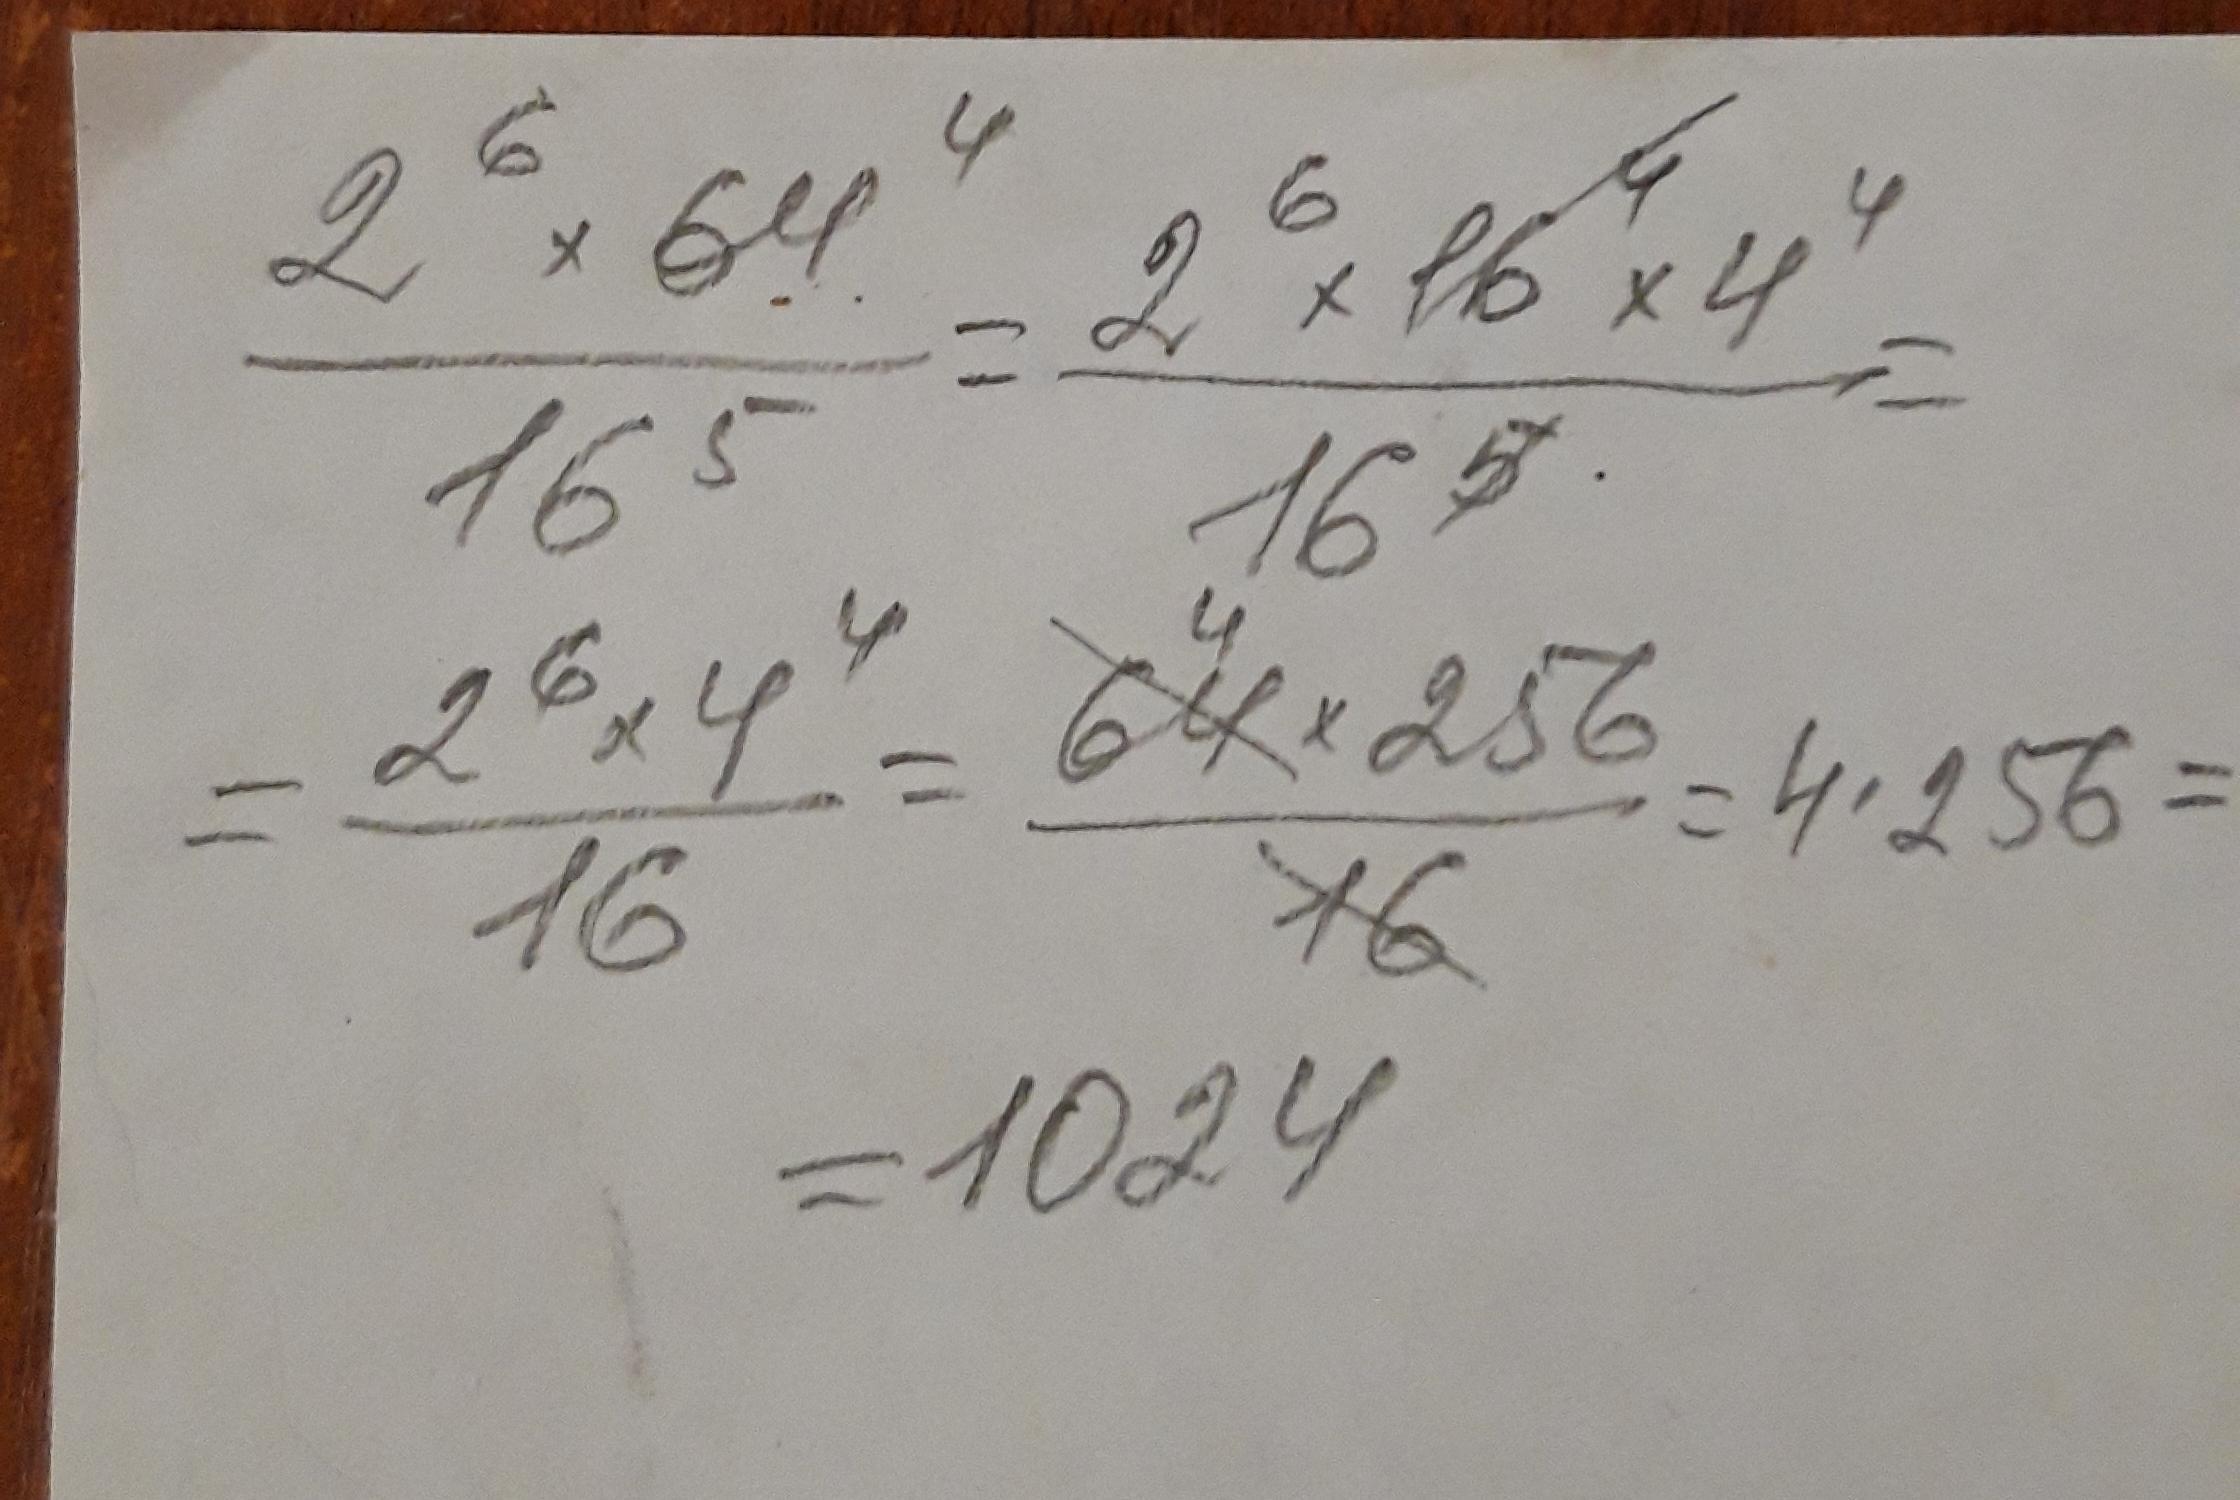 2⁶ × 64⁴ / 16⁵ = 2⁶ × 16⁴ × 4⁴ / 16⁵ =
= 2⁶ × 4⁴ / 16 = 64 ⁴ × 256 / 16 = 4 · 256 =
= 1024